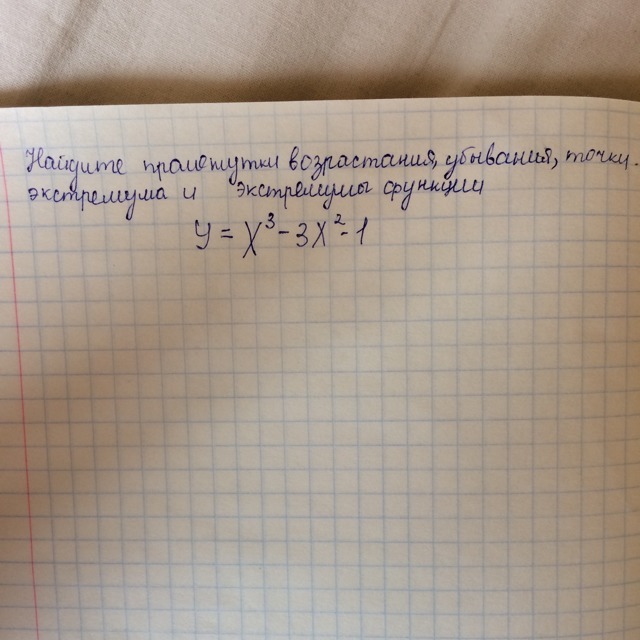 Найдите промежутки возрастания, убывания, точки
экстремума и экстремумы функции
y = x³ - 3x² - 1